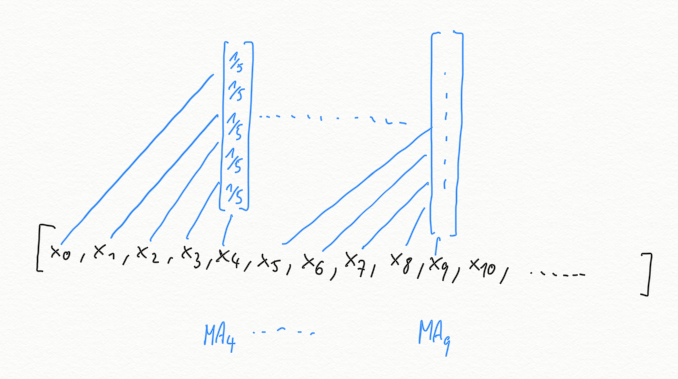 1/5
1/5
1/5 .........
1/5
1/5
[x₀, x₁, x₂, x₃, x₄, x₅, x₆, x₇, x₈, x₉, x₁₀, ...... ]
MA₄ ..... MA₉